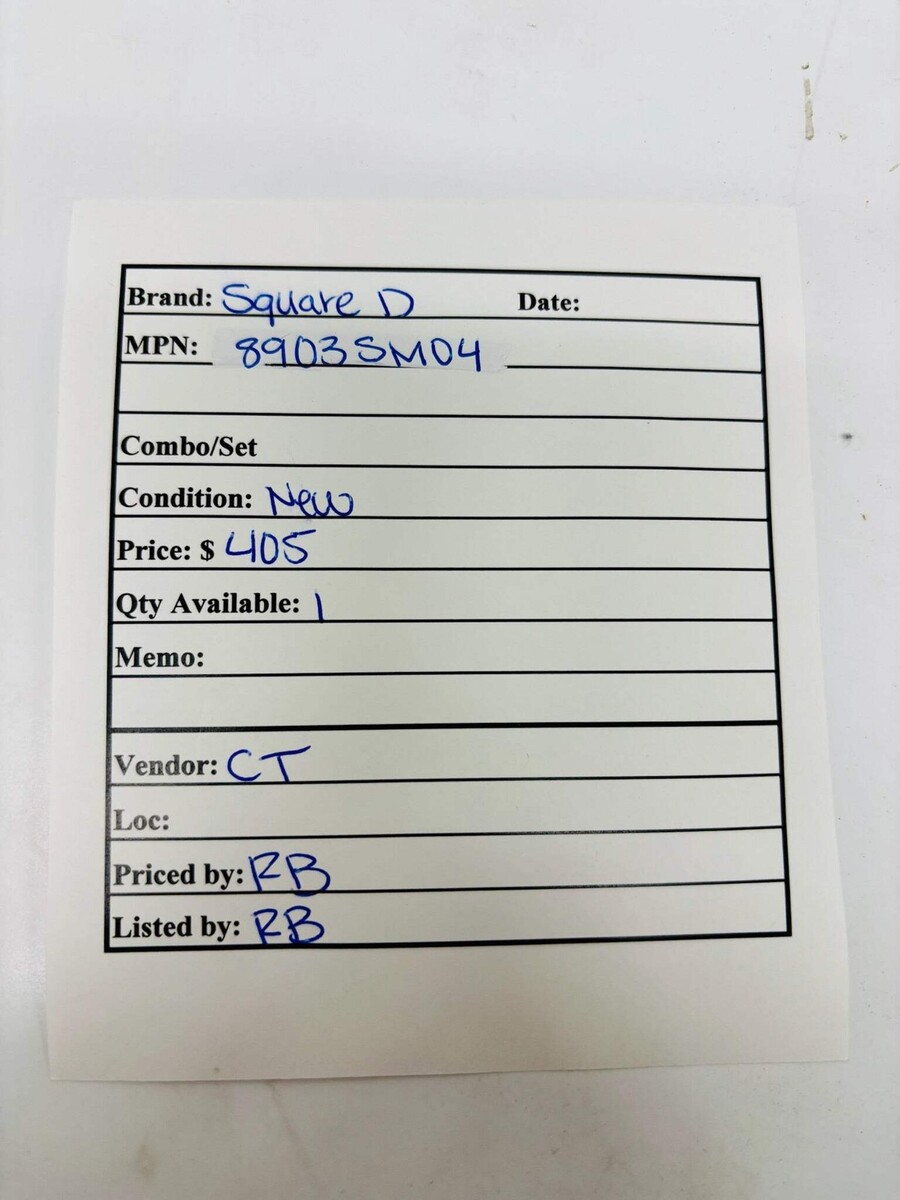 Brand: Square D Date:
MPN: 8903SM04
Combo/Set
Condition: New
Price: $ 405
Qty Available: 1
Memo:
Vendor: CT
Loc:
Priced by: RB
Listed by: RB